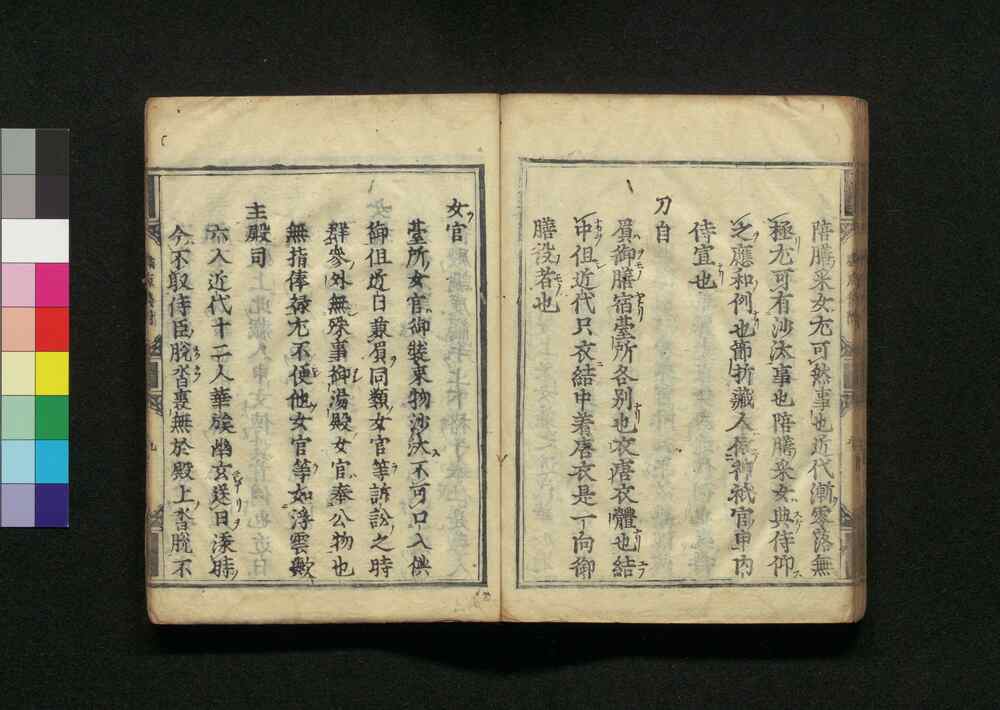 陪膳采女尤可然事也近代漸零落無
極尤可有沙汰事也陪膳采女典侍仰
之應和例也節折藏人依神祇官申内
侍宣也
刀自
屓御膳宿臺所各別也衣唐衣體也結
中但近代只衣結中着唐衣是一向御
膳役者也
女官
臺所女官御裝束物沙汰不可口入供
御但近日兼屓同類女官等訴訟之時
群參外無殊事御湯殿女官奉公物也
無指俸祿尤不便他女官等如浮雲歟
主殿司
六人近代十二人華族幽玄送日添時
今不取侍臣脫沓裏無於殿上沓脫不